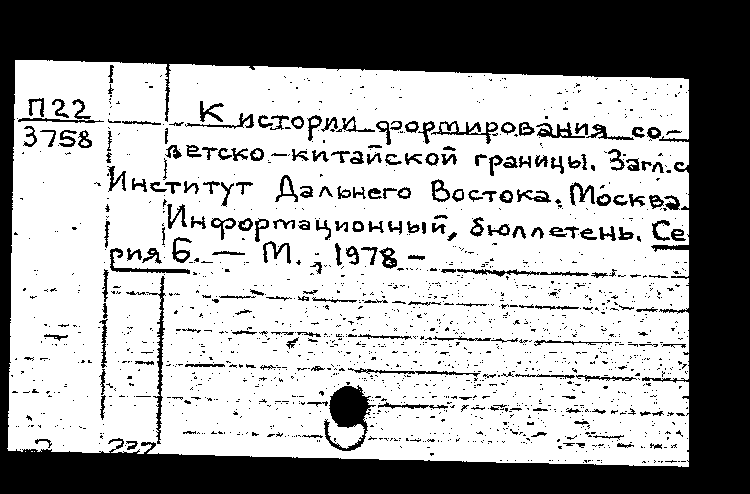 П22
3758
К истории формирования со-
ветско-китайской границы. Загл.с
Институт Дальнего Востока. Москва.
Информационный, бюллетень. Се
рия Б. — М., 1978 –